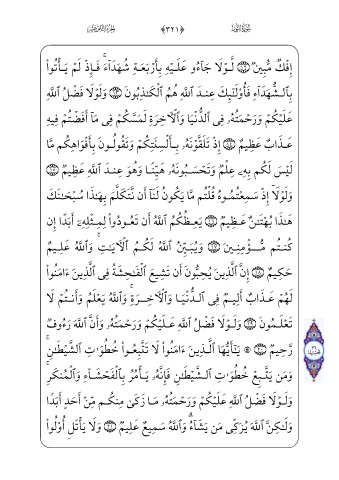 سُورَةُ النُّورِ ﴿٣٢١﴾ الجُزْءُ الثَّامِنَ عَشَرَ
إِفْكٌ مُّبِينٌ ۝١٢ لَّوْلَا جَآءُو عَلَيْهِ بِأَرْبَعَةِ شُهَدَآءَ ۚ فَإِذْ لَمْ يَأْتُوا۟
بِٱلشُّهَدَآءِ فَأُو۟لَٰٓئِكَ عِندَ ٱللَّهِ هُمُ ٱلْكَٰذِبُونَ ۝١٣ وَلَوْلَا فَضْلُ ٱللَّهِ
عَلَيْكُمْ وَرَحْمَتُهُۥ فِى ٱلدُّنْيَا وَٱلْءَاخِرَةِ لَمَسَّكُمْ فِى مَآ أَفَضْتُمْ فِيهِ
عَذَابٌ عَظِيمٌ ۝١٤ إِذْ تَلَقَّوْنَهُۥ بِأَلْسِنَتِكُمْ وَتَقُولُونَ بِأَفْوَاهِكُم مَّا
لَيْسَ لَكُم بِهِۦ عِلْمٌ وَتَحْسَبُونَهُۥ هَيِّنًا وَهُوَ عِندَ ٱللَّهِ عَظِيمٌ ۝١٥
وَلَوْلَآ إِذْ سَمِعْتُمُوهُ قُلْتُم مَّا يَكُونُ لَنَآ أَن نَّتَكَلَّمَ بِهَٰذَا سُبْحَٰنَكَ
هَٰذَا بُهْتَٰنٌ عَظِيمٌ ۝١٦ يَعِظُكُمُ ٱللَّهُ أَن تَعُودُوا۟ لِمِثْلِهِۦٓ أَبَدًا إِن
كُنتُم مُّؤْمِنِينَ ۝١٧ وَيُبَيِّنُ ٱللَّهُ لَكُمُ ٱلْءَايَٰتِ ۚ وَٱللَّهُ عَلِيمٌ
حَكِيمٌ ۝١٨ إِنَّ ٱلَّذِينَ يُحِبُّونَ أَن تَشِيعَ ٱلْفَٰحِشَةُ فِى ٱلَّذِينَ ءَامَنُوا۟
لَهُمْ عَذَابٌ أَلِيمٌ فِى ٱلدُّنْيَا وَٱلْءَاخِرَةِ ۚ وَٱللَّهُ يَعْلَمُ وَأَنتُمْ لَا
تَعْلَمُونَ ۝١٩ وَلَوْلَا فَضْلُ ٱللَّهِ عَلَيْكُمْ وَرَحْمَتُهُۥ وَأَنَّ ٱللَّهَ رَءُوفٌ
رَّحِيمٌ ۝٢٠ ۞ يَٰٓأَيُّهَا ٱلَّذِينَ ءَامَنُوا۟ لَا تَتَّبِعُوا۟ خُطُوَٰتِ ٱلشَّيْطَٰنِ ۚ
وَمَن يَتَّبِعْ خُطُوَٰتِ ٱلشَّيْطَٰنِ فَإِنَّهُۥ يَأْمُرُ بِٱلْفَحْشَآءِ وَٱلْمُنكَرِ ۚ
وَلَوْلَا فَضْلُ ٱللَّهِ عَلَيْكُمْ وَرَحْمَتُهُۥ مَا زَكَىٰ مِنكُم مِّنْ أَحَدٍ أَبَدًا
وَلَٰكِنَّ ٱللَّهَ يُزَكِّى مَن يَشَآءُ ۗ وَٱللَّهُ سَمِيعٌ عَلِيمٌ ۝٢١ وَلَا يَأْتَلِ أُو۟لُوا۟